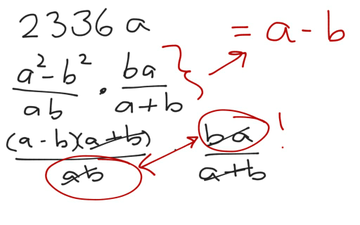 2336 a
= a - b
a² - b² / ab · ba / a + b
(a - b)(a + b) / ab   ba / a + b !